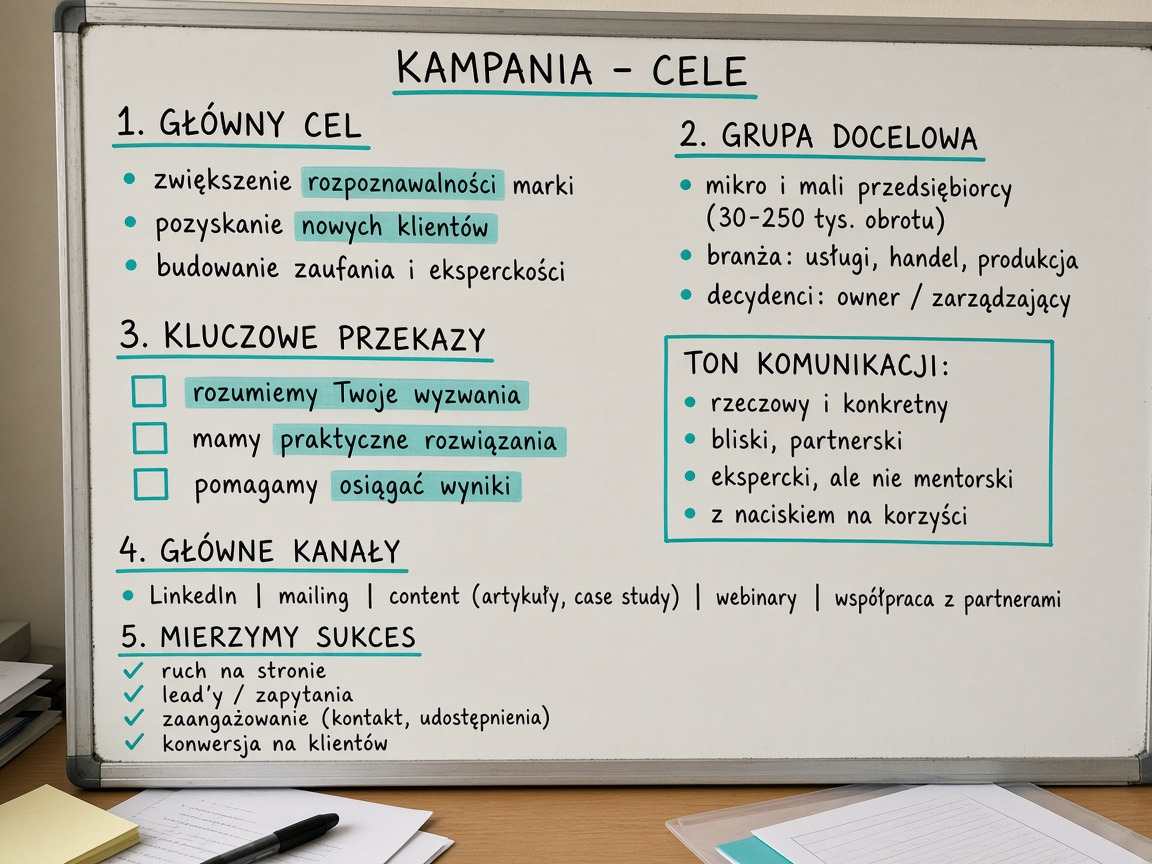 KAMPANIA – CELE
1. GŁÓWNY CEL
• zwiększenie rozpoznawalności marki
• pozyskanie nowych klientów
• budowanie zaufania i eksperckości
2. GRUPA DOCELOWA
• mikro i mali przedsiębiorcy
(30-250 tys. obrotu)
• branża: usługi, handel, produkcja
• decydenci: owner / zarządzający
3. KLUCZOWE PRZEKAZY
☐ rozumiemy Twoje wyzwania
☐ mamy praktyczne rozwiązania
☐ pomagamy osiągać wyniki
TON KOMUNIKACJI:
• rzeczowy i konkretny
• bliski, partnerski
• ekspercki, ale nie mentorski
• z naciskiem na korzyści
4. GŁÓWNE KANAŁY
• LinkedIn | mailing | content (artykuły, case study) | webinary | współpraca z partnerami
5. MIERZYMY SUKCES
✓ ruch na stronie
✓ lead'y / zapytania
✓ zaangażowanie (kontakt, udostępnienia)
✓ konwersja na klientów